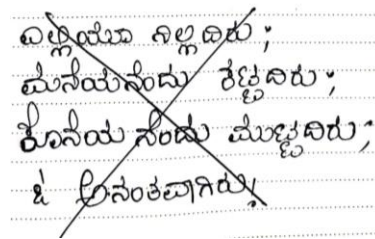 ಎಲ್ಲಿಯೂ ನಿಲ್ಲದಿರು;
ಮನೆಯನೆಂದು ಕಟ್ಟದಿರು;
ಕೊನೆಯನೆಂದು ಮುಟ್ಟದಿರು;
ಓ ಅನಂತವಾಗಿರು!